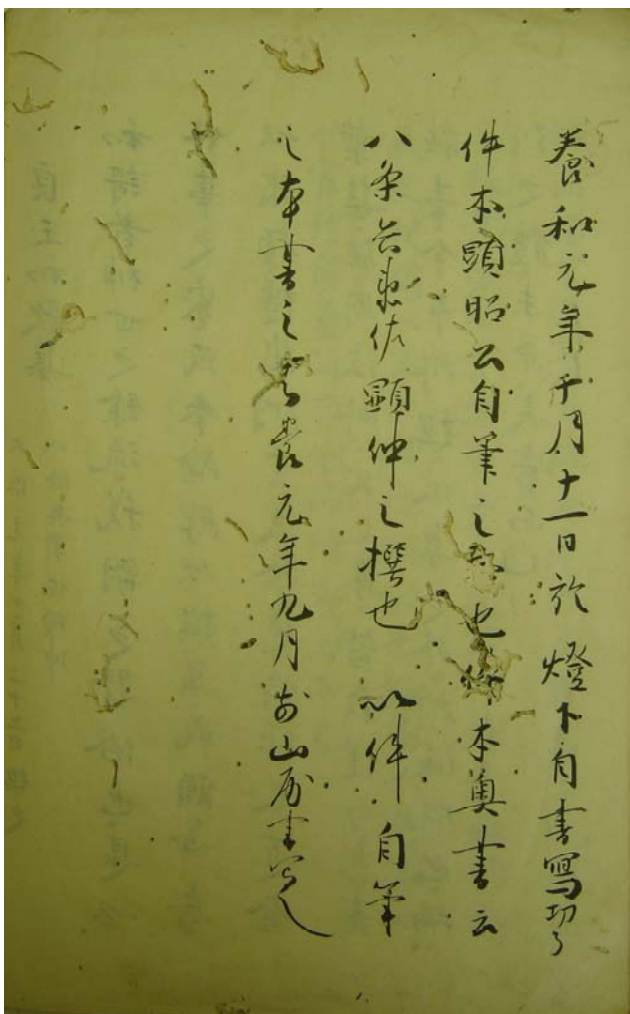 養和元年月十一日於燈下自書寫功了
件本顕昭公自筆之也本奥書云
八条兵衛佐顕仲之撰也　以件自筆
之本書之元年九月於山房書写之